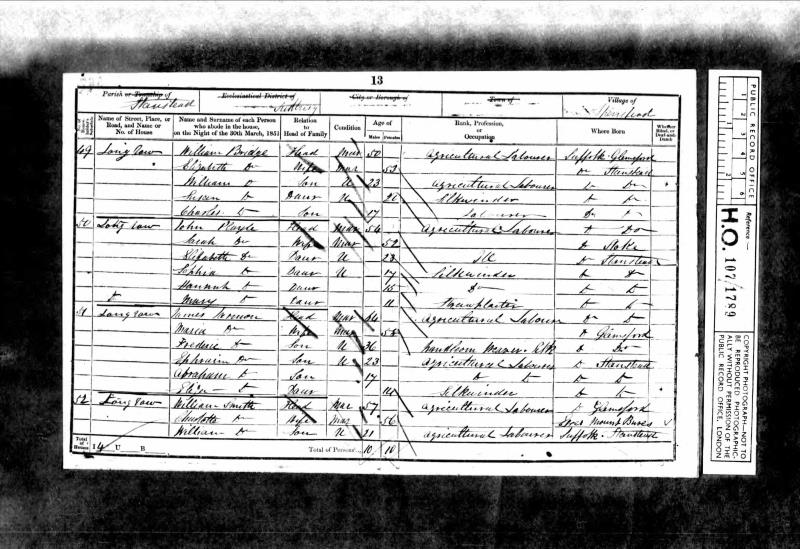 13
Parish or Township of Ecclesiastical District of City or Borough of Town of Village of
Stanstead Stanstead
Name of Street, Place, or Road, and Name or No. of House
Name and Surname of each Person who abode in the house, on the Night of the 30th March, 1851
Relation to Head of Family
Condition
Age of
Males Females
Rank, Profession, or Occupation
Where Born
Whether Blind, or Deaf-and-Dumb
49 Long row William Bridge Head Mar 50 agricultural Labourer Suffolk Glemsford
Elizabeth Do Wife Mar 53 Do Stanstead
William Do Son U 23 agricultural Labourer Do Do
Susan Do Daur U 20 Silkwinder Do Do
Charles Do Son 17 Labourer Do Do
50 Long row John Head Mar 54 agricultural Labourer Do Do
Sarah Do Wife Mar 52 Do Stoke
Elizabeth Do Daur U 23 Do Stanstead
Sophia Do Daur U 17 Silkwinder Do Do
Hannah Do Daur 15 Do Do Do
Do Mary Do Daur 11 Do Do
51 Long row James Head Mar 64 agricultural Labourer Do Do
Maria Do Wife Mar 58 Do Glemsford
Frederic Do Son U 36 handloom Weaver Silk Do Do
Ephraim Do Son U 23 agricultural Labourer Do Stanstead
Abraham Do Son 17 Do Do Do
Eliza Do Daur 14 Silkwinder Do Do
52 Long row William Smith Head Mar 57 agricultural Labourer Do Glemsford
Charlotte Do Wife Mar 56 Mount Bures
William Do Son U 21 agricultural Labourer Suffolk Stanstead
Total of Houses I 4 U B Total of Persons 10 10
PUBLIC RECORD OFFICE
1 2 3 4 5 6
Reference :-
H.O. 107/1789
COPYRIGHT PHOTOGRAPH—NOT TO BE REPRODUCED PHOTOGRAPHICALLY WITHOUT PERMISSION OF THE PUBLIC RECORD OFFICE, LONDON